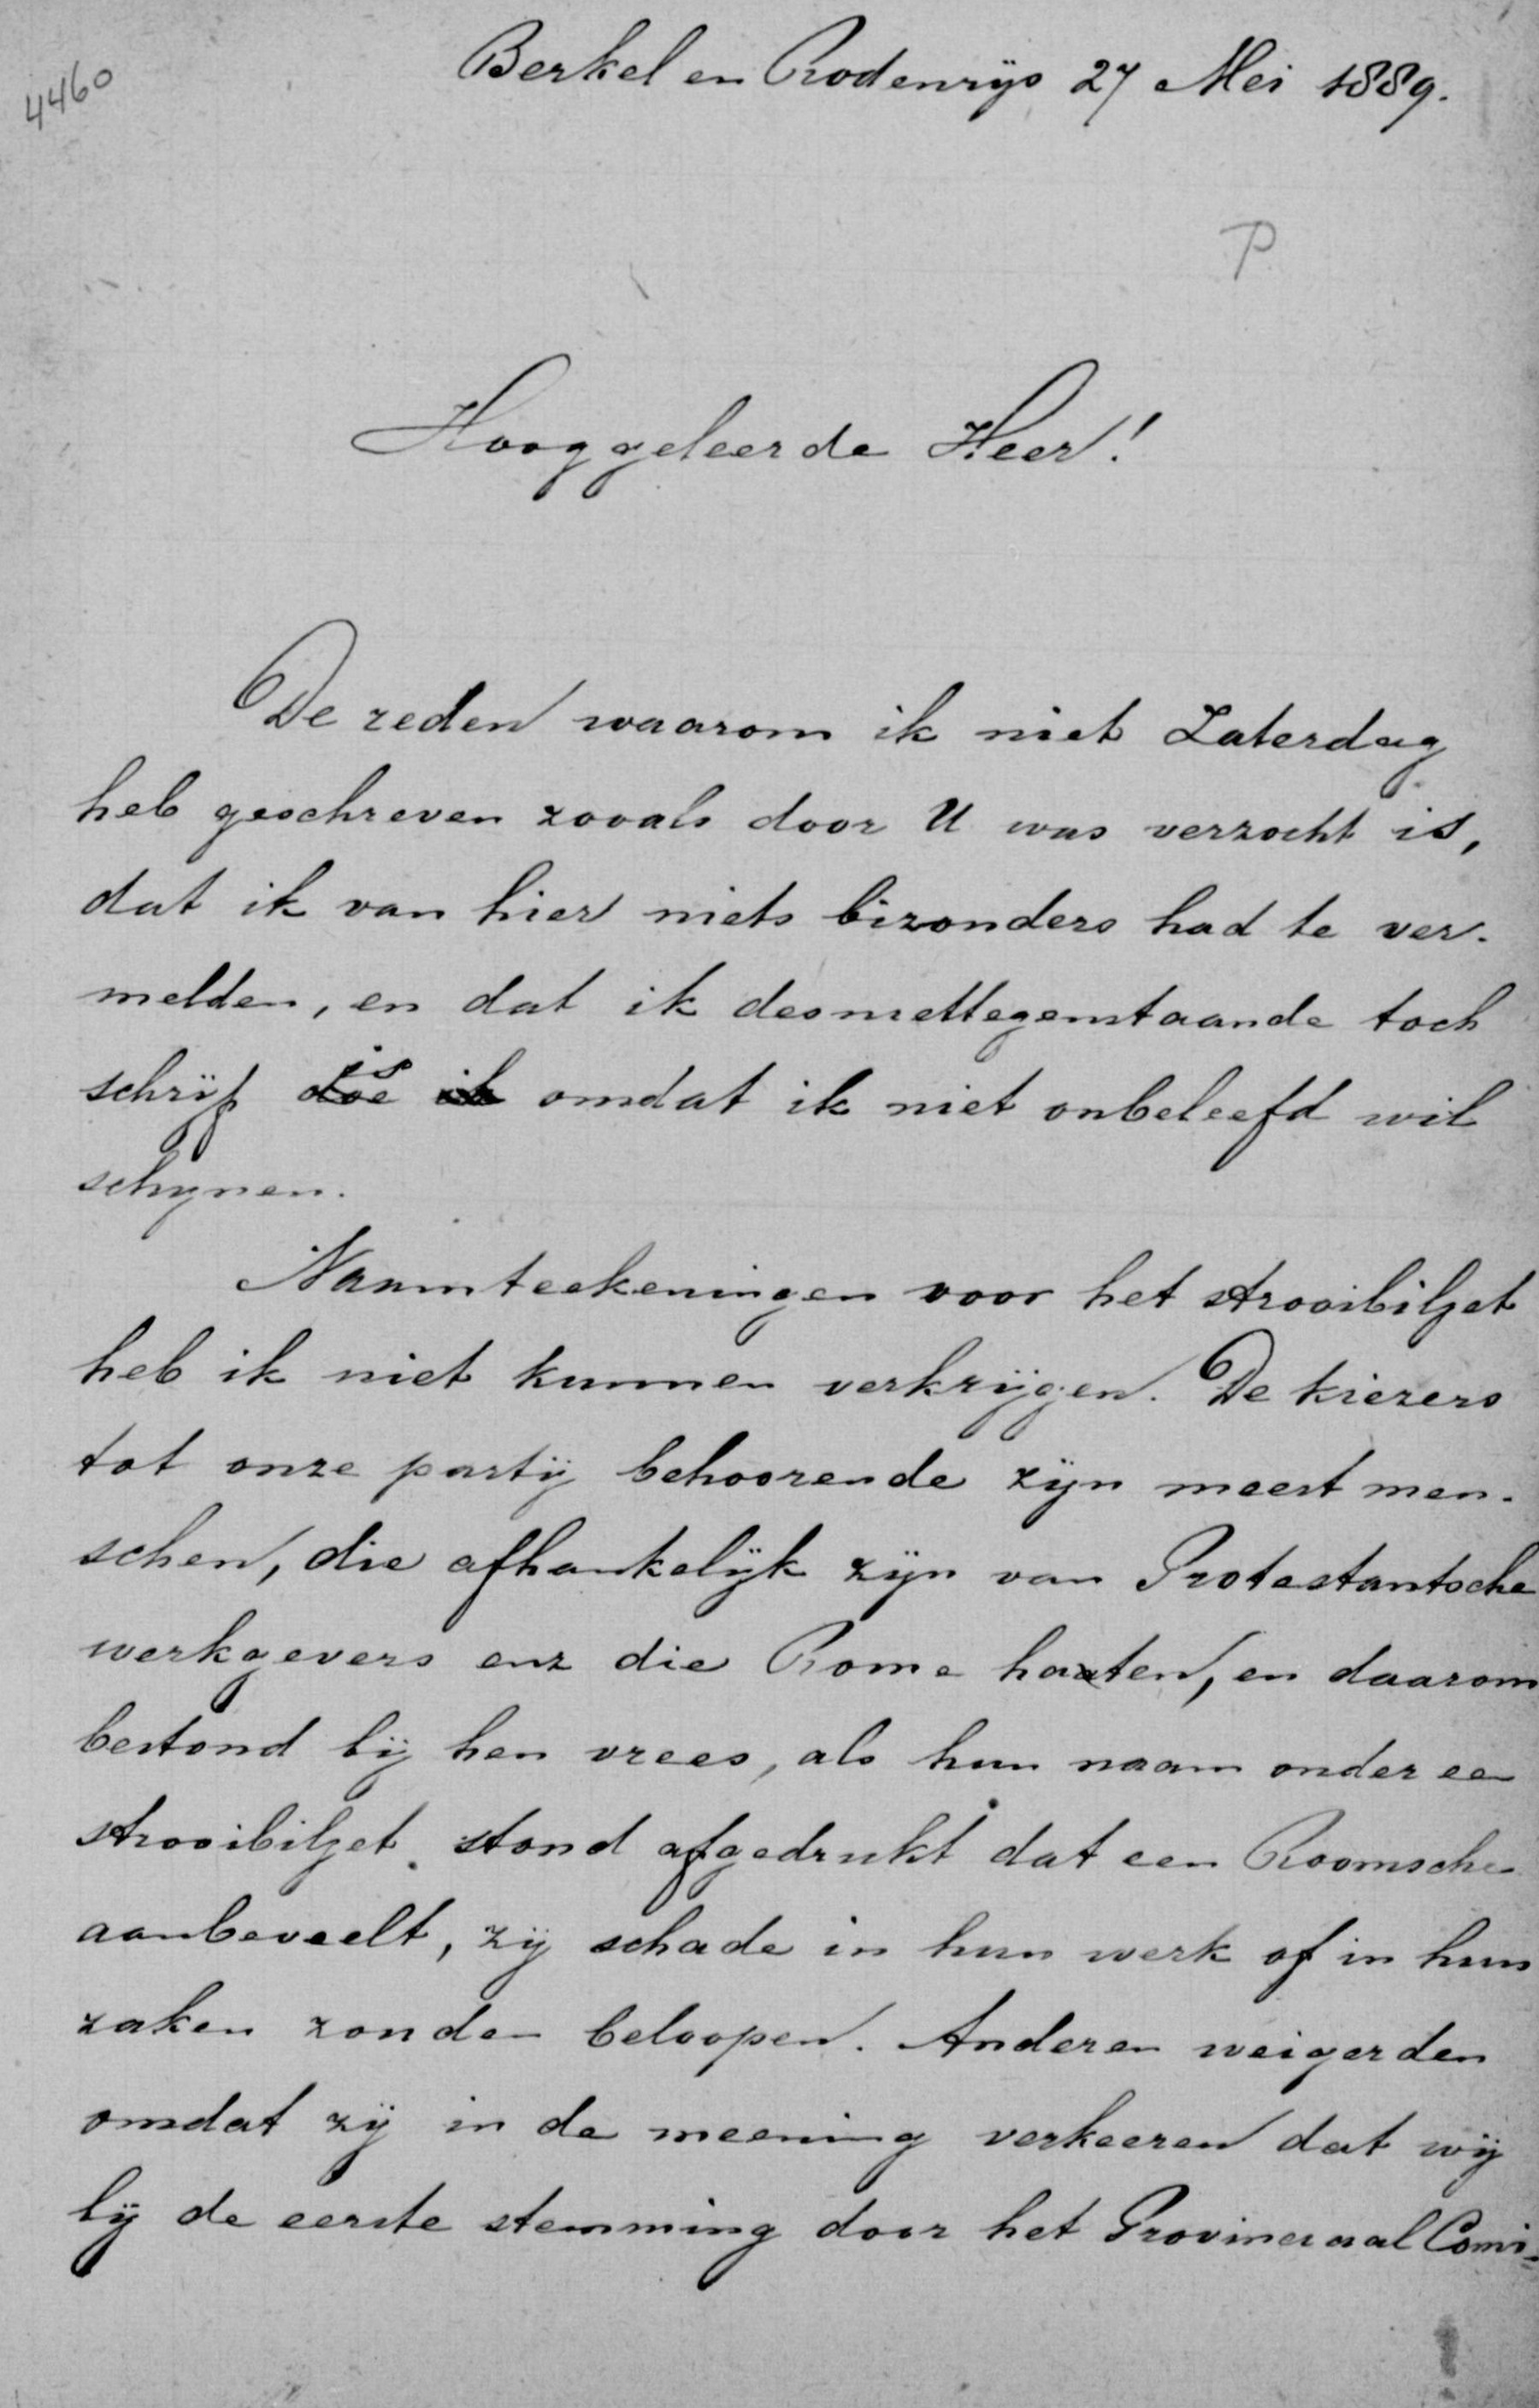 4460
Berkel en Rodenrijs 27 Mei 1889.
P
Hooggeleerde Heer!
De reden waarom ik niet Zaterdag
heb geschreven zooals door U was verzocht is,
dat ik van hier niets bizonders had te ver-
melden, en dat ik desniettegenstaande toch
schrijf is omdat ik niet onbeleefd wil
schynen.
Naamteekeningen voor het strooibiljet
heb ik niet kunnen verkrijgen. De kiezers
tot onze partij behoorende zijn meest men-
schen, die afhankelijk zijn van Protestantsche
werkgevers enz die Rome haaten, en daarom
bestond bij hen vrees, als hun naam onder een
strooibiljet stond afgedrukt dat een Roomsche
aanbeveelt, zij schade in hun werk of in hun
zaken zouden beloopen. Anderen weigerden
omdat zij in de meening verkeeren dat wij
bij de eerste stemming door het Provinciaal Comi-